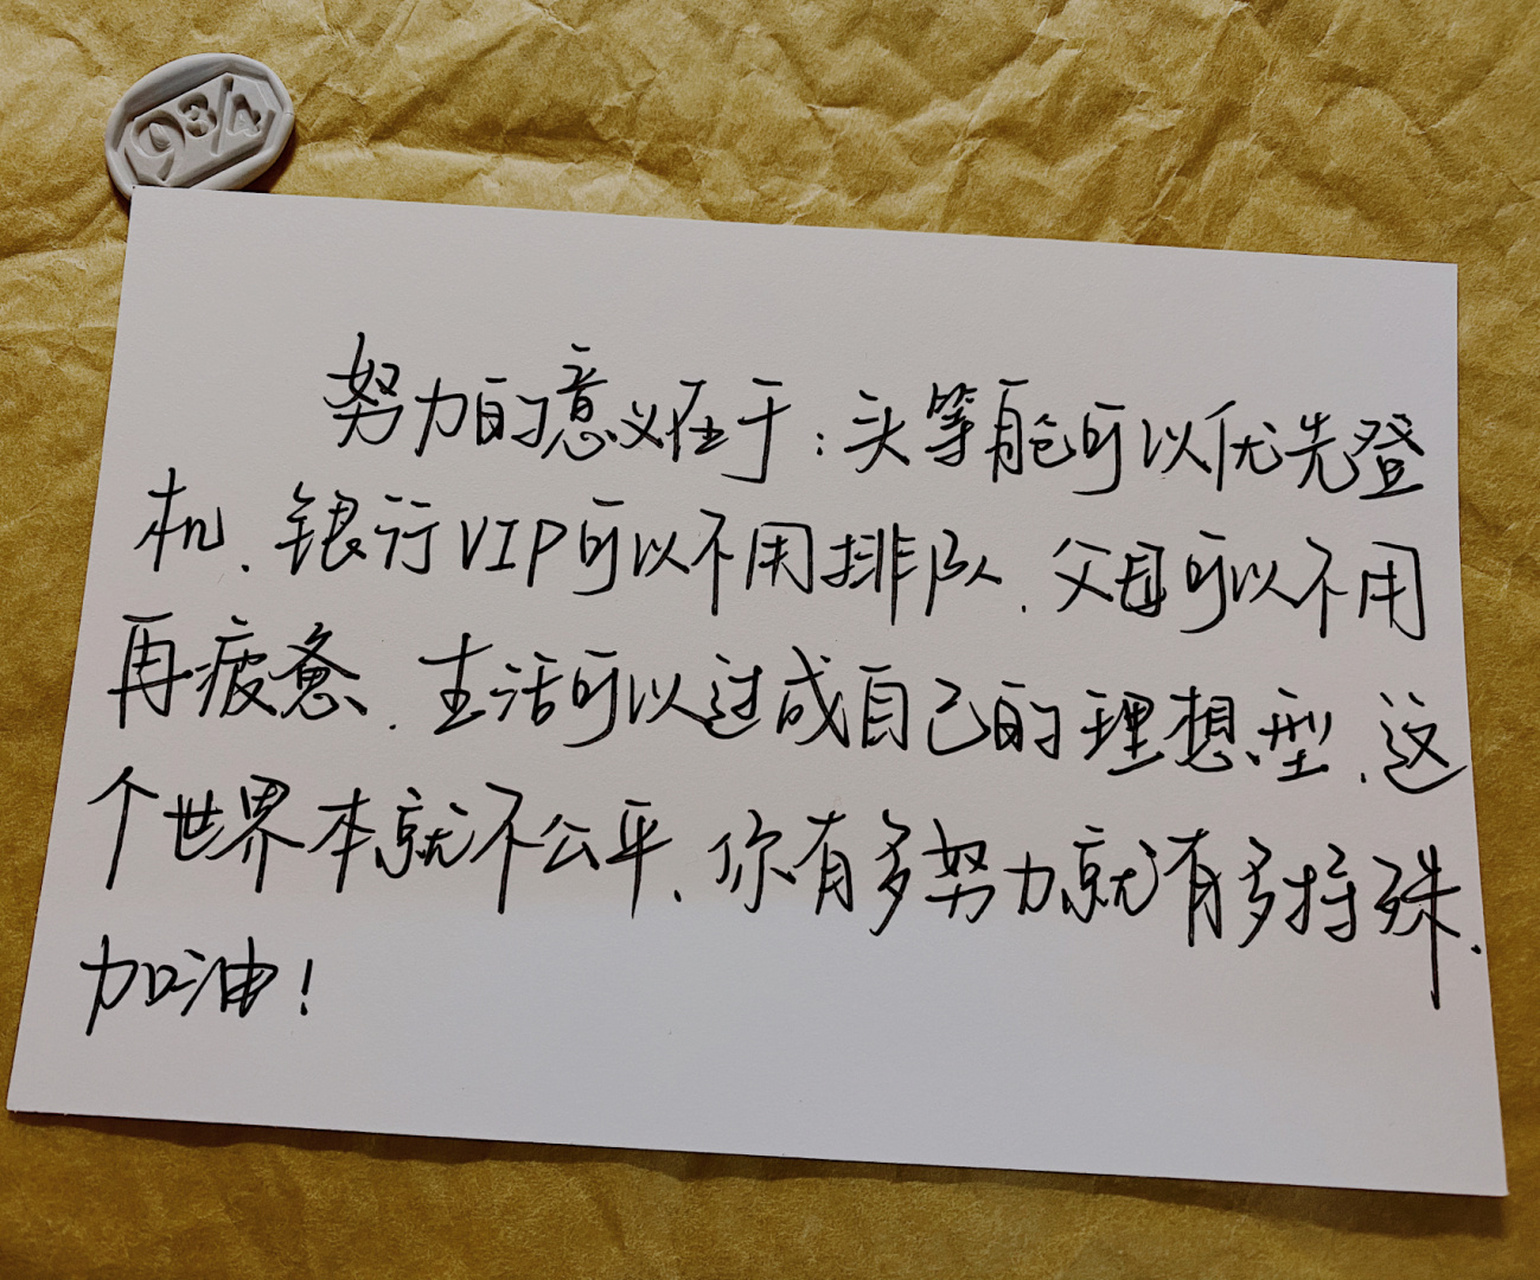 9 3/4
努力的意义在于:头等舱可以优先登
机、银行VIP可以不用排队、父母可以不用
再疲惫、生活可以过成自己的理想型、这
个世界本就不公平、你有多努力就有多特殊.
加油!